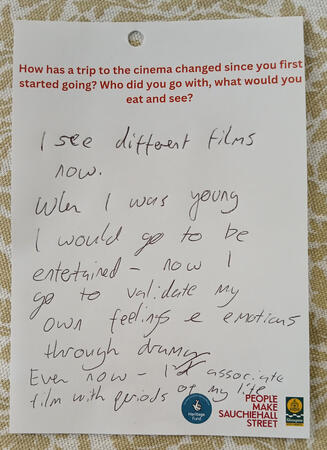 How has a trip to the cinema changed since you first
started going? Who did you go with, what would you
eat and see?
I see different films
now.
When I was young
I would go to be
entertained – now I
go to validate my
own feelings & emotions
through drama
Even now – I associate
film with periods of my life
Heritage
Fund
PEOPLE
MAKE
SAUCHIEHALL
STREET